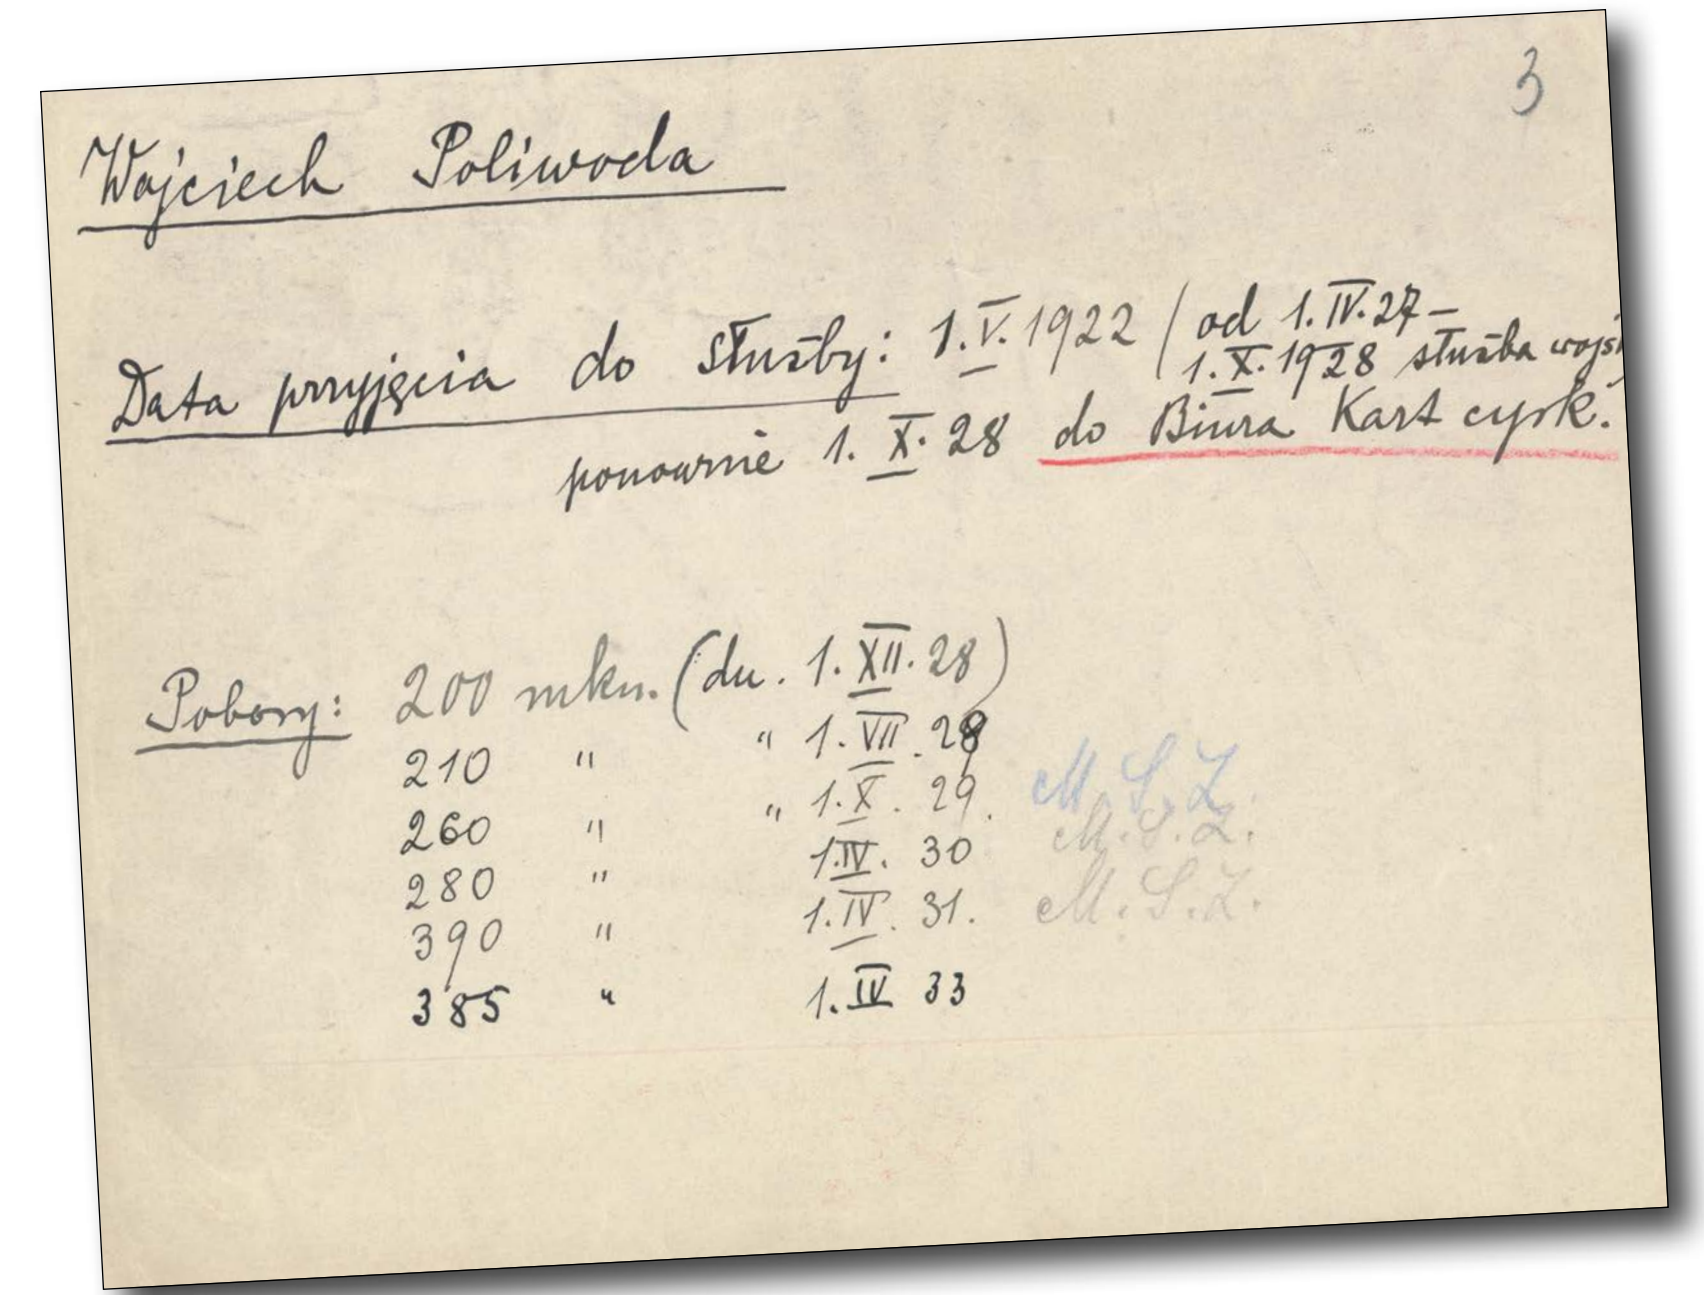 3
Wojciech Poliwoda
Data przyjęcia do służby: 1.V.1922 / od 1.IV.27–
1.X.1928 służba wojsk
ponownie 1.X.28 do Biura Kart cyrk.
Pobory: 200 mkn. (dn. 1.XII.28)
210 " " 1.VII.29
260 " " 1.X.29.
M.S.Z.
280 " 1.IV.30 M.S.Z.
390 " 1.IV.31. M.S.Z.
385 " 1.IV 33